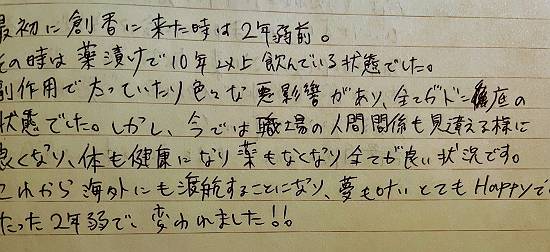 最初に創香に来た時は2年弱前。
その時は薬漬けで10年以上飲んでいる状態でした。
副作用で太っていたり色々な悪影響があり、全てがドン底の
状態でした。しかし、今では職場の人間関係も見違える様に
良くなり、体も健康になり薬もなくなり全てが良い状況です。
これから海外にも渡航することになり、夢も叶い とてもHappyで
たった2年弱で、変われました!!